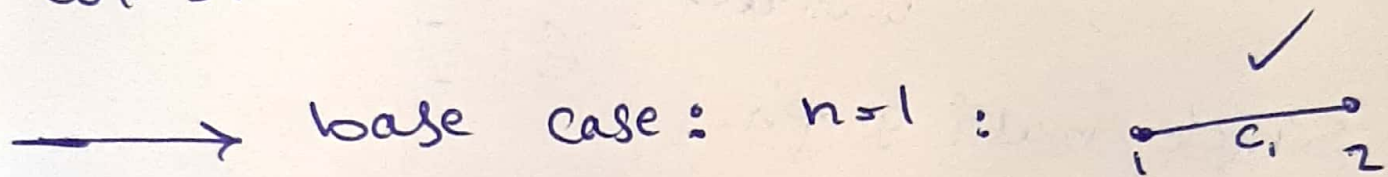 → base case: n=1 : ✓
1 C₁ 2